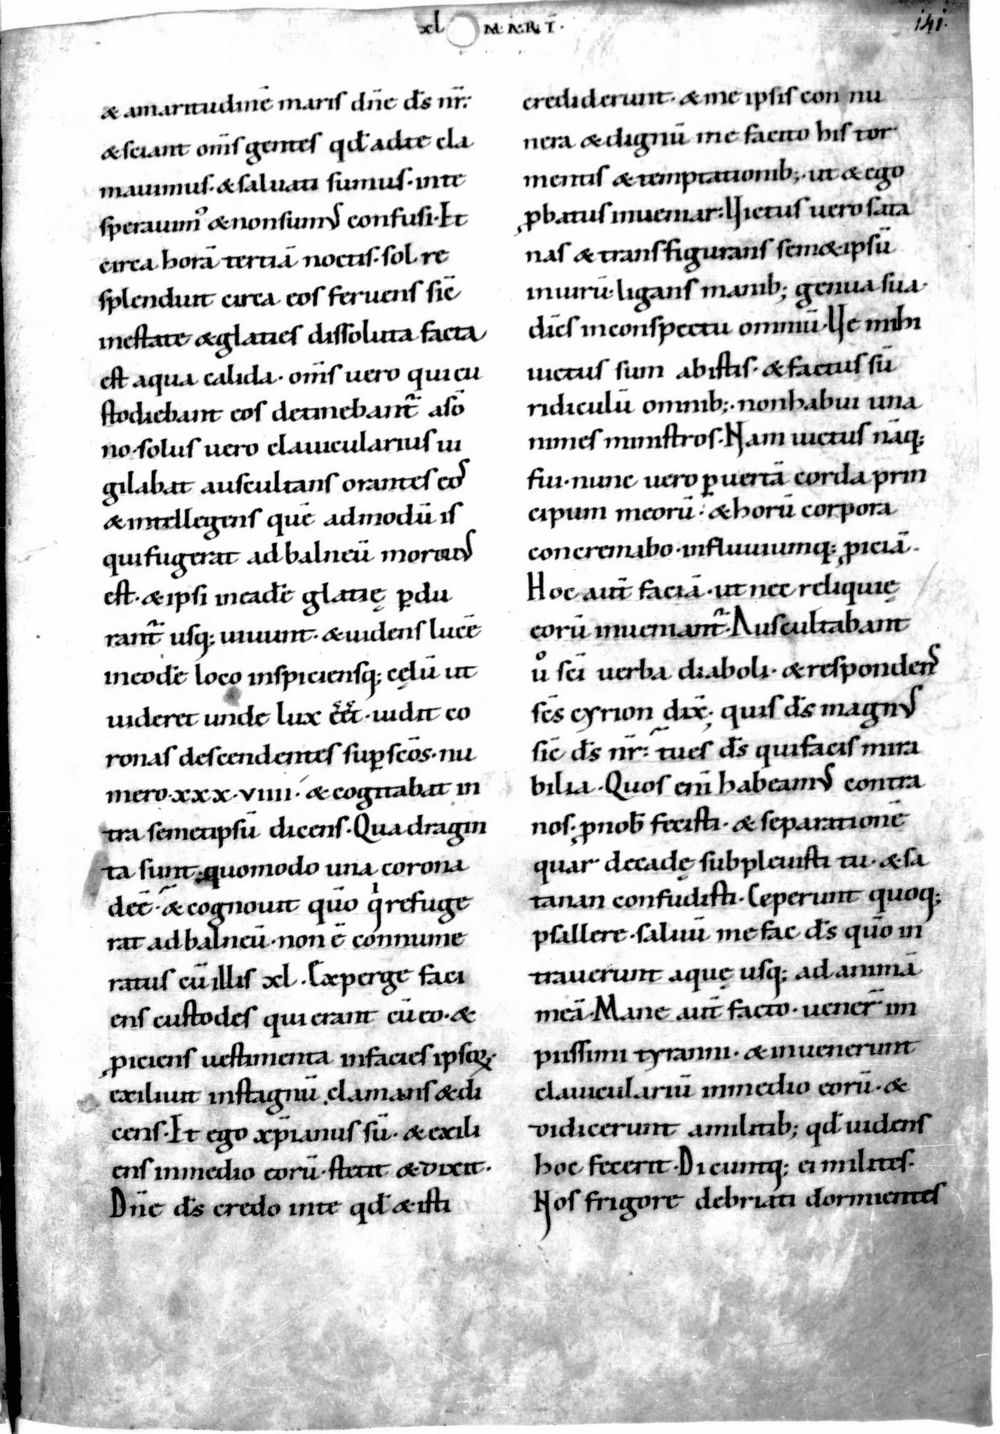 xl MARṪ.
141.
& amaritudinē maris dn̄e d̄s nr̄:
& sciant om̄s gentes qđ ad te cla
mauimus· & saluati sumus· in te
sperauim᾽ & non sumus confusi· Et
circa horā tertiā noctis· sol re
splenduit circa eos feruens sic̄
in estate & glaties dissoluta facta
est aqua calida· om̄s uero qui cu
stodiebant eos detinebant̄ a sō
no· solus uero clauicularius ui
gilabat auscultans orantes eos
& intellegens quē admodū is
qui fugerat ad balneū mortuus
est· & ipsi in eadē glatię p̱du
rant̄ usq; uiuunt· & uidens lucē
in eodē loco inspiciensq; cęlū ut
uideret unde lux eēt· uidit co
ronas descendentes sup̱ sc̄os· nu
mero· xxx· viiii· & cogitabat in
tra semetipsū dicens· Quadragin
ta sunt; quomodo una corona
deē· & cognouit quō qͥ refuge
rat ad balneū· non ē connume
ratus cū illis xl· Experge faci
ens custodes qui erant cū eo· &
ꝓiciens uestimenta in facies ipsoꝝ·
exiliuit in stagnū clamans & di
cens· Et ego xp̄ianus sū· & exili
ens in medio eorū· stetit & dixit·
Dn̄e d̄s credo in te qđ & isti
crediderunt· & me ipsis con nu
nera & dignū me facito his tor
mentis & temptationib;· ut & ego
ꝓbatus inueniar: Victus uero sata
nas & transfigurans sem&ipsū
in uirū· ligans manib; genua sua·
diēs in conspectu omniū· Ve mihi
uictus sum ab istis· & factus sū
ridiculū omnib;· non habui una
nimes ministros· Nam uictus nāq;
fui· nunc uero p̱uertā corda prin
cipum meorū· & horū corpora
concremabo· in fluuiumq; ꝓiciā·
Hoc aut̄ faciā· ut nec reliquię
eorū inueniant̄· Auscultabant
uͦ sc̄i uerba diaboli· & respondens
sc̄s cyrion dix̄; quis d̄s magnus
sic̄ d̄s nr̄: tu es d̄s qui facis mira
bilia· Quos eni̅ habeamus contra
nos; ꝓ nob̄ fecisti· & separationē
quar decadę subpleuisti tu· & sa
tanan confudisti· Ceperunt quoq;
psallere· saluū me fac d̄s quō in
trauerunt aquę usq; ad animā
meā· Mane aut̄ facto· uener̄ im
piissimi tyranni· & inuenerunt
clauiculariū in medio eorū· &
didicerunt a militib; qđ uidens
hoc fecerit· Dicuntq; ei milites·
Nos frigore debriati dormientes